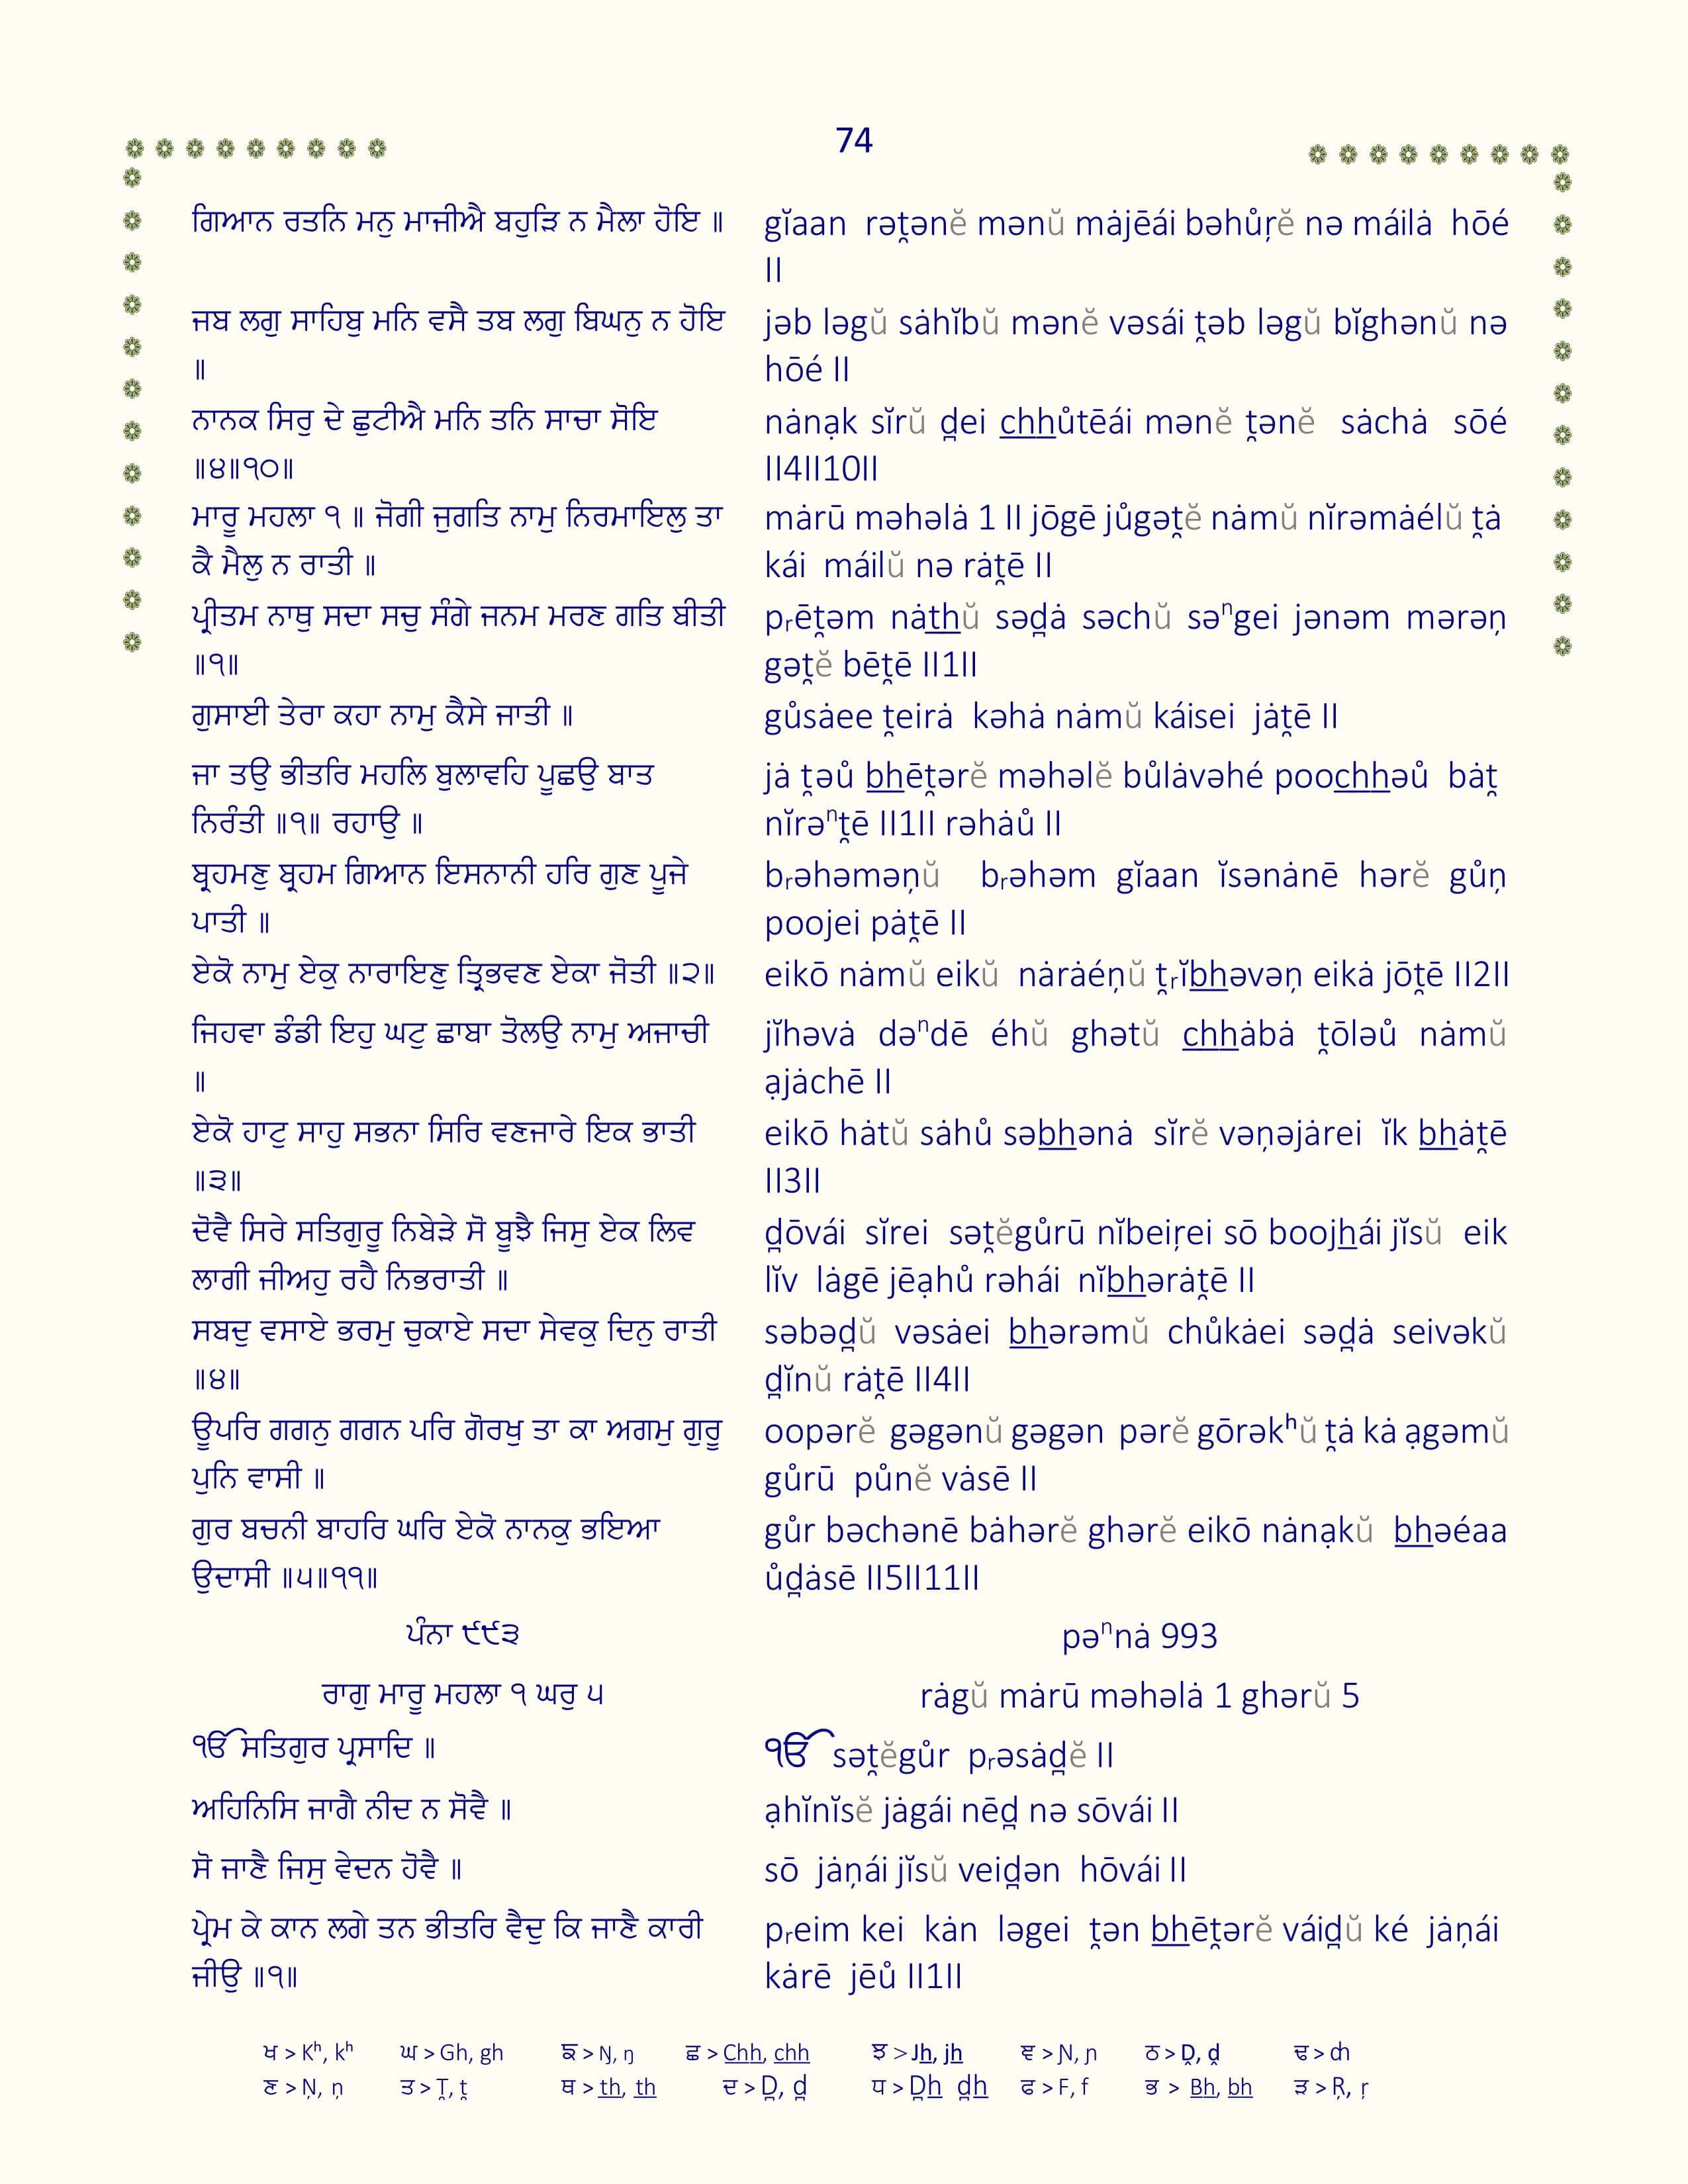 74
ਗਿਆਨ ਰਤਨਿ ਮਨੁ ਮਾਜੀਐ ਬਹੁੜਿ ਨ ਮੈਲਾ ਹੋਇ ॥
gĭaan rət̯ənĕ mənŭ mȧjēái bəhůŗĕ nə máilȧ hōé
II
ਜਬ ਲਗੁ ਸਾਹਿਬੁ ਮਨਿ ਵਸੈ ਤਬ ਲਗੁ ਬਿਘਨੁ ਨ ਹੋਇ
॥
jəb ləgŭ sȧhĭbŭ mənĕ vəsái t̯əb ləgŭ bĭghənŭ nə
hōé II
ਨਾਨਕ ਸਿਰੁ ਦੇ ਛੁਟੀਐ ਮਨਿ ਤਨਿ ਸਾਚਾ ਸੋਇ
॥੪॥੧੦॥
nȧnạk sĭrŭ d̪ei chhůtēái mənĕ t̯ənĕ sȧchȧ sōé
II4II10II
ਮਾਰੂ ਮਹਲਾ ੧ ॥ ਜੋਗੀ ਜੁਗਤਿ ਨਾਮੁ ਨਿਰਮਾਇਲੁ ਤਾ
ਕੈ ਮੈਲੁ ਨ ਰਾਤੀ ॥
mȧrū məhəlȧ 1 II jōgē jůgət̯ĕ nȧmŭ nĭrəmȧélŭ t̯ȧ
kái máilŭ nə rȧt̯ē II
ਪ੍ਰੀਤਮ ਨਾਥੁ ਸਦਾ ਸਚੁ ਸੰਗੇ ਜਨਮ ਮਰਣ ਗਤਿ ਬੀਤੀ
॥੧॥
pᵣēt̯əm nȧthŭ səd̪ȧ səchŭ səⁿgei jənəm mərəņ
gət̯ĕ bēt̯ē II1II
ਗੁਸਾਈ ਤੇਰਾ ਕਹਾ ਨਾਮੁ ਕੈਸੇ ਜਾਤੀ ॥
gůsȧee t̯eirȧ kəhȧ nȧmŭ káisei jȧt̯ē II
ਜਾ ਤਉ ਭੀਤਰਿ ਮਹਲਿ ਬੁਲਾਵਹਿ ਪੂਛਉ ਬਾਤ
ਨਿਰੰਤੀ ॥੧॥ ਰਹਾਉ ॥
jȧ t̯əů bhēt̯ərĕ məhəlĕ bůlȧvəhé poochhəů bȧt̯
nĭrəⁿt̯ē II1II rəhȧů II
ਬ੍ਰਹਮਣੁ ਬ੍ਰਹਮ ਗਿਆਨ ਇਸਨਾਨੀ ਹਰਿ ਗੁਣ ਪੂਜੇ
ਪਾਤੀ ॥
bᵣəhəməņŭ bᵣəhəm gĭaan ĭsənȧnē hərĕ gůņ
poojei pȧt̯ē II
ਏਕੋ ਨਾਮੁ ਏਕੁ ਨਾਰਾਇਣੁ ਤ੍ਰਿਭਵਣ ਏਕਾ ਜੋਤੀ ॥੨॥
eikō nȧmŭ eikŭ nȧrȧéņŭ t̯ᵣĭbhəvəņ eikȧ jōt̯ē II2II
ਜਿਹਵਾ ਡੰਡੀ ਇਹੁ ਘਟੁ ਛਾਬਾ ਤੋਲਉ ਨਾਮੁ ਅਜਾਚੀ
॥
jĭhəvȧ dəⁿdē éhŭ ghətŭ chhȧbȧ t̯ōləů nȧmŭ
ạjȧchē II
ਏਕੋ ਹਾਟੁ ਸਾਹੁ ਸਭਨਾ ਸਿਰਿ ਵਣਜਾਰੇ ਇਕ ਭਾਤੀ
॥੩॥
eikō hȧtŭ sȧhů səbhənȧ sĭrĕ vəņəjȧrei ĭk bhȧt̯ē
II3II
ਦੋਵੈ ਸਿਰੇ ਸਤਿਗੁਰੂ ਨਿਬੇੜੇ ਸੋ ਬੂਝੈ ਜਿਸੁ ਏਕ ਲਿਵ
ਲਾਗੀ ਜੀਅਹੁ ਰਹੈ ਨਿਭਰਾਤੀ ॥
d̪ōvái sĭrei sət̯ĕgůrū nĭbeiŗei sō boojhái jĭsŭ eik
lĭv lȧgē jēạhů rəhái nĭbhərȧt̯ē II
ਸਬਦੁ ਵਸਾਏ ਭਰਮੁ ਚੁਕਾਏ ਸਦਾ ਸੇਵਕੁ ਦਿਨੁ ਰਾਤੀ
॥੪॥
səbəd̪ŭ vəsȧei bhərəmŭ chůkȧei səd̪ȧ seivəkŭ
d̪ĭnŭ rȧt̯ē II4II
ਊਪਰਿ ਗਗਨੁ ਗਗਨ ਪਰਿ ਗੋਰਖੁ ਤਾ ਕਾ ਅਗਮੁ ਗੁਰੂ
ਪੁਨਿ ਵਾਸੀ ॥
oopərĕ gəgənŭ gəgən pərĕ gōrəkʰŭ t̯ȧ kȧ ạgəmŭ
gůrū půnĕ vȧsē II
ਗੁਰ ਬਚਨੀ ਬਾਹਰਿ ਘਰਿ ਏਕੋ ਨਾਨਕੁ ਭਇਆ
ਉਦਾਸੀ ॥੫॥੧੧॥
gůr bəchənē bȧhərĕ ghərĕ eikō nȧnạkŭ bhəéaa
ůd̪ȧsē II5II11II
ਪੰਨਾ ੯੯੩
pəⁿnȧ 993
ਰਾਗੁ ਮਾਰੂ ਮਹਲਾ ੧ ਘਰੁ ੫
rȧgŭ mȧrū məhəlȧ 1 ghərŭ 5
ੴ ਸਤਿਗੁਰ ਪ੍ਰਸਾਦਿ ॥
ੴ sət̯ĕgůr pᵣəsȧd̪ĕ II
ਅਹਿਨਿਸਿ ਜਾਗੈ ਨੀਦ ਨ ਸੋਵੈ ॥
ạhĭnĭsĕ jȧgái nēd̪ nə sōvái II
ਸੋ ਜਾਣੈ ਜਿਸੁ ਵੇਦਨ ਹੋਵੈ ॥
sō jȧņái jĭsŭ veid̪ən hōvái II
ਪ੍ਰੇਮ ਕੇ ਕਾਨ ਲਗੇ ਤਨ ਭੀਤਰਿ ਵੈਦੁ ਕਿ ਜਾਣੈ ਕਾਰੀ
ਜੀਉ ॥੧॥
pᵣeim kei kȧn ləgei t̯ən bhēt̯ərĕ váid̪ŭ ké jȧņái
kȧrē jēů II1II
ਖ > Kʰ, kʰ ਘ > Gh, gh ਙ > Ŋ, ŋ ਛ > Chh, chh ਝ > Jh, jh ਞ > Ɲ, ɲ ਠ > D̯, d̯ ਢ > ȸh
ਣ > Ņ, ņ ਤ > T̯, t̯ ਥ > th, th ਦ > D̪, d̪ ਧ > D̪h d̪h ਫ > F, f ਭ > Bh, bh ੜ > Ŗ, ŗ